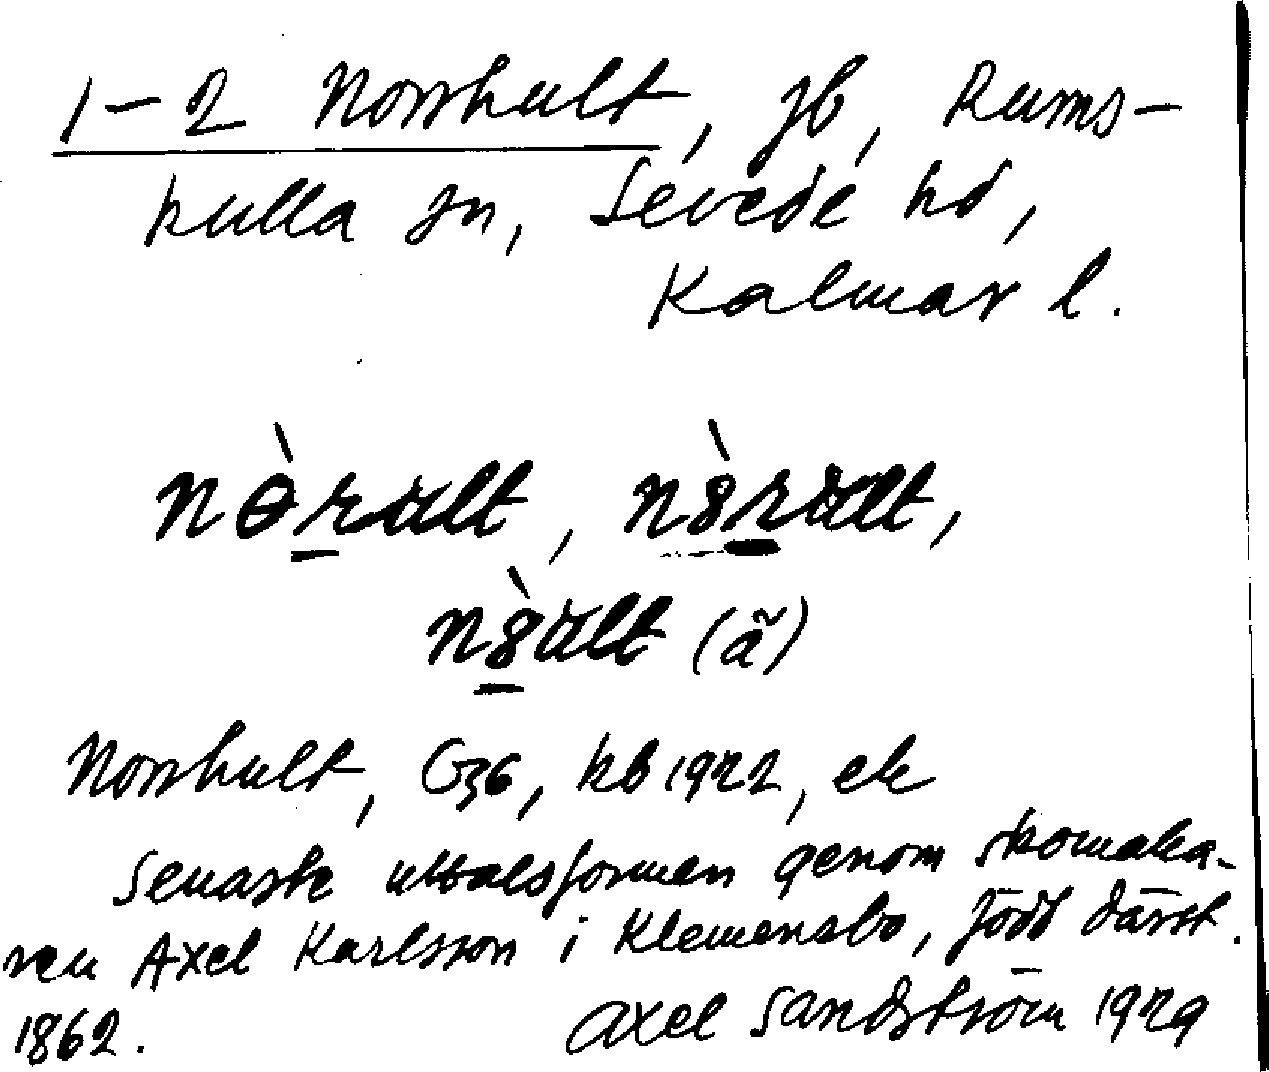 1–2 Norrhult, jb, Rums-
kulla sn, Sevede hd,
Kalmar l.
nɵ̀rult, n8̀rult,
n8̀ult (ã)
Norrhult, G36, kb 1922, ek
Senaste uttalsformen genom skomaka-
ren Axel Karlsson i Klemensbo, född därst.
1862. Axel Sandström 1929